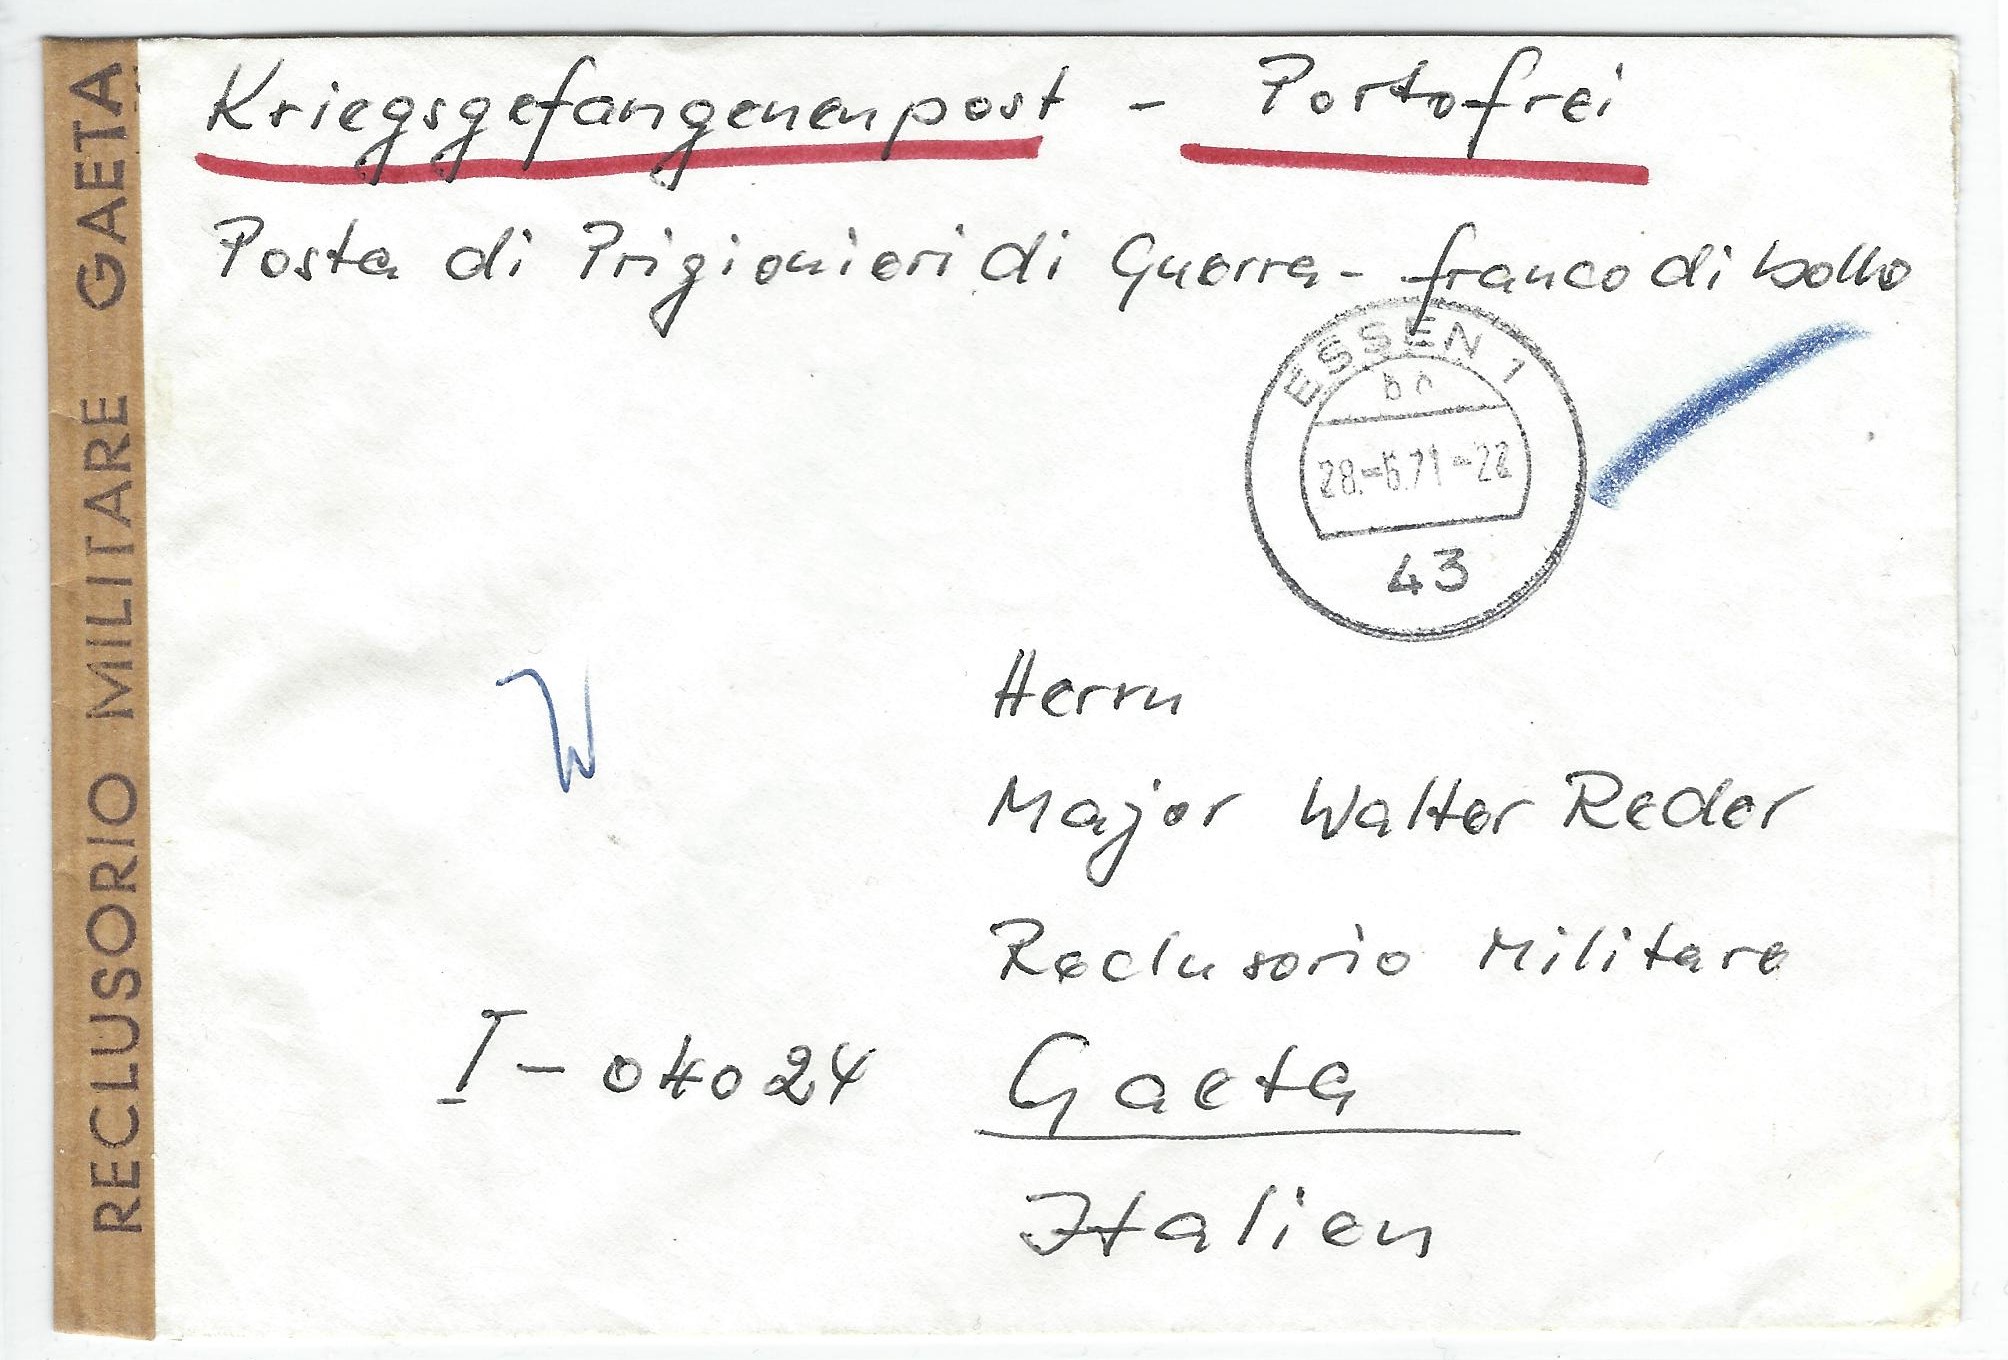 Kriegsgefangenenpost - Portofrei
Posta di Prigionieri di Guerra - franco di bollo
ESSEN 1
28.-5.71-22
43
W
Herrn
Major Walter Reder
Reclusorio Militare
I - 04024 Gaeta
Italien
RECLUSORIO MILITARE GAETA